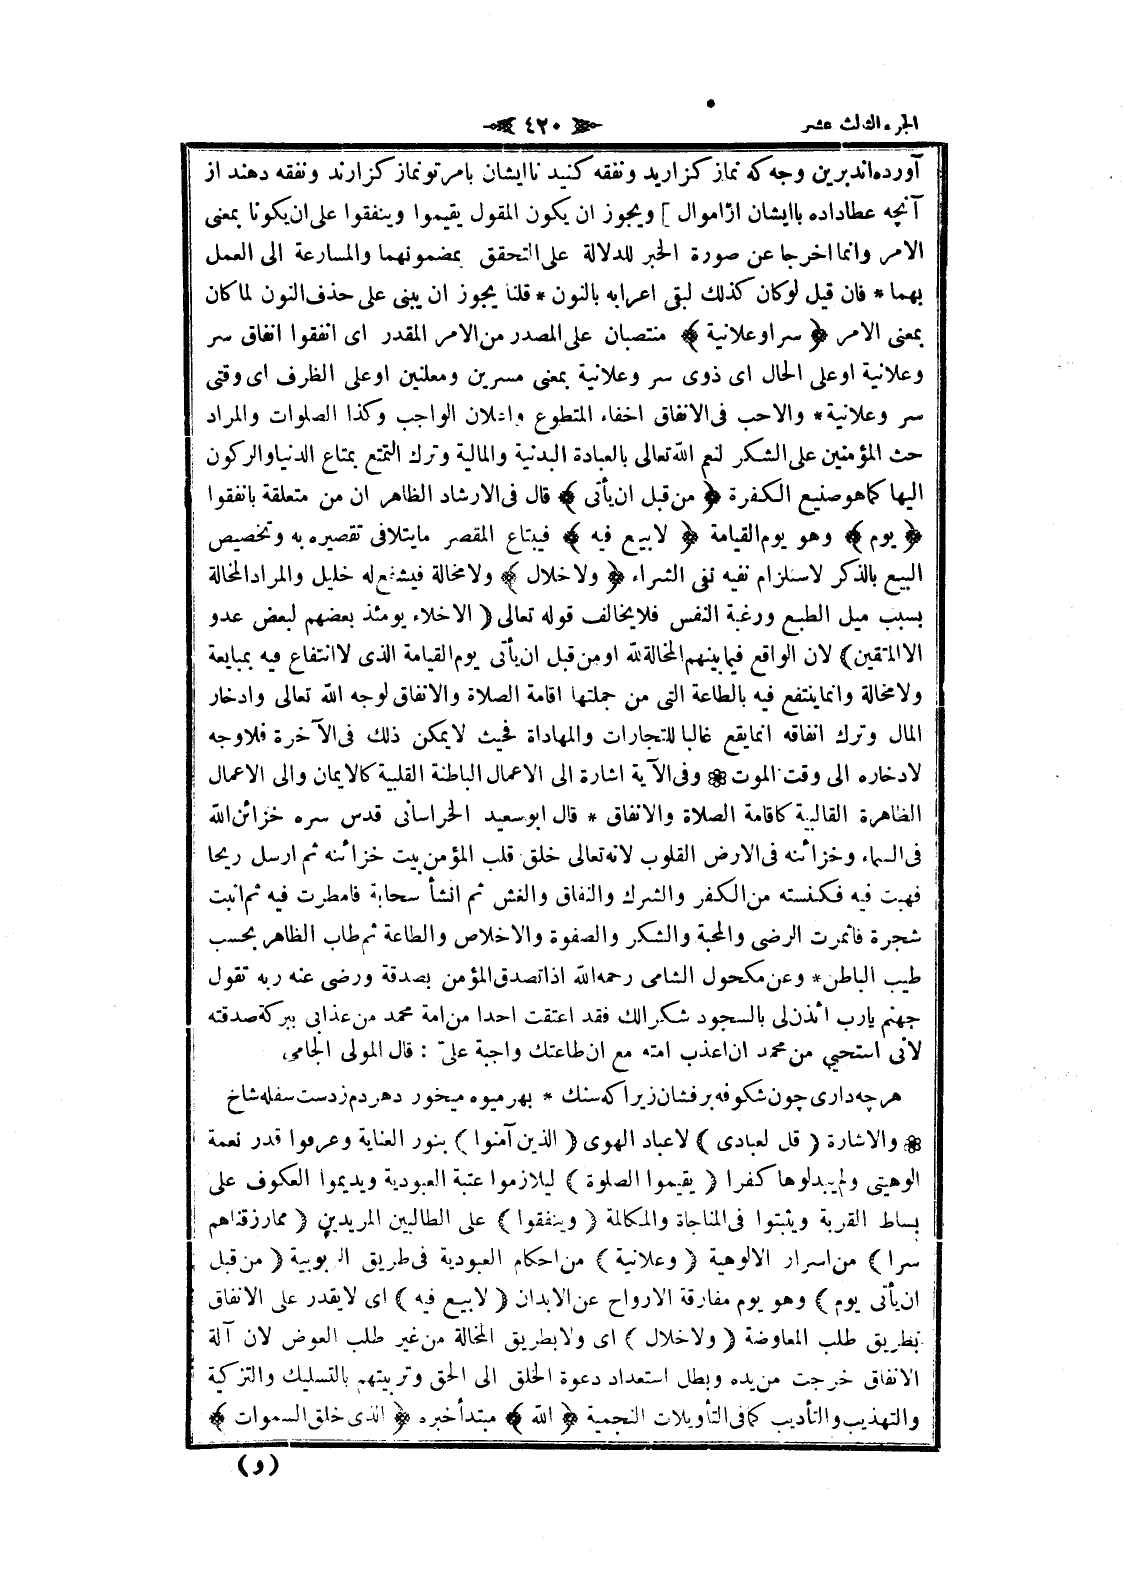 الجزء الثالث عشر ٤٢٠
آورده اند برين وجه كه نماز كزاريد ونفقه كنيد تا ايشان بامر تو نماز كزارند ونفقه دهند از
آنچه عطا داده با ايشان از اموال ] ويجوز ان يكون المقول يقيموا وينفقوا على ان يكونا بمعنى
الامر وانما اخرجا عن صورة الخبر للدلالة على التحقق بمضمونهما والمسارعة الى العمل
بهما * فان قيل لو كان كذلك لبقى اعرابه بالنون * قلنا يجوز ان يبنى على حذف النون لما كان
بمعنى الامر ﴿ سرا وعلانية ﴾ منتصبان على المصدر من الامر المقدر اى انفقوا انفاق سر
وعلانية او على الحال اى ذوى سر وعلانية بمعنى مسرين ومعلنين او على الظرف اى وقتى
سر وعلانية * والاحب فى الانفاق اخفاء المتطوع واعلان الواجب وكذا الصلوات والمراد
حث المؤمنين على الشكر لنعم الله تعالى بالعبادة البدنية والمالية وترك التمتع بمتاع الدنيا والركون
اليها كما هو صنيع الكفرة ﴿ من قبل ان يأتى ﴾ قال فى الارشاد الظاهر ان من متعلقة بانفقوا
﴿ يوم ﴾ وهو يوم القيامة ﴿ لا بيع فيه ﴾ فيبتاع المقصر ما يتلافى تقصيره به وتخصيص
البيع بالذكر لاستلزام نفيه نفى الشراء ﴿ ولا خلال ﴾ ولا مخالة فيشفع له خليل والمراد المخالة
بسبب ميل الطبع ورغبة النفس فلا يخالف قوله تعالى ( الاخلاء يومئذ بعضهم لبعض عدو
الا المتقين ) لان الواقع فيما بينهم المخالة لله او من قبل ان يأتى يوم القيامة الذى لا انتفاع فيه بمبايعة
ولا مخالة وانما ينتفع فيه بالطاعة التى من جملتها اقامة الصلاة والانفاق لوجه الله تعالى وادخار
المال وترك انفاقه انما يقع غالبا للتجارات والمهاداة فحيث لا يمكن ذلك فى الآخرة فلا وجه
لادخاره الى وقت الموت ❁ وفى الآية اشارة الى الاعمال الباطنة القلبية كالايمان والى الاعمال
الظاهرة القالبية كاقامة الصلاة والانفاق * قال ابو سعيد الخراسانى قدس سره خزائن الله
فى السماء وخزائنه فى الارض القلوب لانه تعالى خلق قلب المؤمن بيت خزائنه ثم ارسل ريحا
فهبت فيه فكنسته من الكفر والشرك والنفاق والغش ثم انشأ سحابة فامطرت فيه ثم انبت
شجرة فاثمرت الرضى والمحبة والشكر والصفوة والاخلاص والطاعة ثم طاب الظاهر بحسب
طيب الباطن * وعن مكحول الشامى رحمه الله اذا تصدق المؤمن بصدقة ورضى عنه ربه تقول
جهنم يارب ائذن لى بالسجود شكرا لك فقد اعتقت احدا من امة محمد من عذابى ببركة صدقته
لانى استحيى من محمد ان اعذب امته مع ان طاعتك واجبة علىّ : قال المولى الجامى
هر چه دارى چون شكوفه بر فشان زيرا كه سنك * بهر ميوه ميخور دهر دم ز دست سفله شاخ
❁ والاشارة ( قل لعبادى ) لا عباد الهوى ( الذين آمنوا ) بنور العناية وعرفوا قدر نعمة
الوهيتى ولم يبدلوها كفرا ( يقيموا الصلوة ) ليلازموا عتبة العبودية ويديموا العكوف على
بساط القربة ويثبتوا فى المناجاة والمكالمة ( وينفقوا ) على الطالبين المريدين ( مما رزقناهم
سرا ) من اسرار الالوهية ( وعلانية ) من احكام العبودية فى طريق الربوبية ( من قبل
ان يأتى يوم ) وهو يوم مفارقة الارواح عن الابدان ( لا بيع فيه ) اى لا يقدر على الانفاق
بطريق طلب المعاوضة ( ولا خلال ) اى ولا بطريق المخالة من غير طلب العوض لان آلة
الانفاق خرجت من يده وبطل استعداد دعوة الخلق الى الحق وتربيتهم بالتسليك والتزكية
والتهذيب والتأديب كما فى التأويلات النجمية ﴿ الله ﴾ مبتدأ خبره ﴿ الذى خلق السموات ﴾
( و )